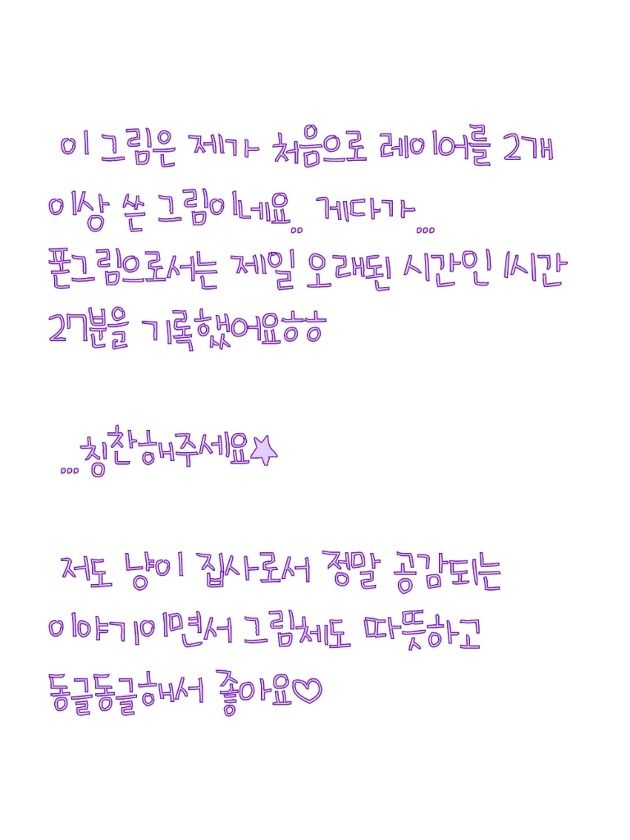 이 그림은 제가 처음으로 레이어를 2개
이상 쓴 그림이네요.. 게다가...
폰그림으로서는 제일 오래된 시간인 1시간
27분을 기록했어요ㅎㅎ
...칭찬해주세요★
저도 냥이 집사로서 정말 공감되는
이야기이면서 그림체도 따뜻하고
동글동글해서 좋아요♡